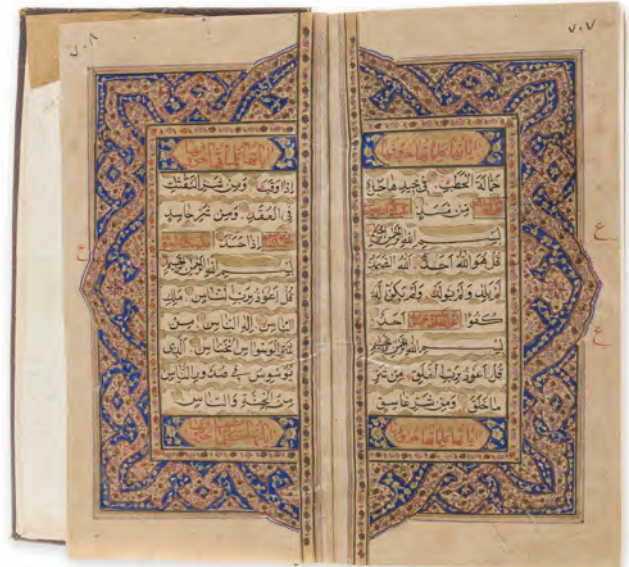 ٧٠٧
حَمَّالَةَ الْحَطَبِ فِي جِيدِهَا حَبْلٌ
مِنْ مَسَدٍ
بِسْمِ اللهِ الرَّحْمٰنِ الرَّحِيمِ
قُلْ هُوَ اللهُ اَحَدٌ اَللهُ الصَّمَدُ
لَمْ يَلِدْ وَلَمْ يُولَدْ وَلَمْ يَكُنْ لَهُ
كُفُوًا اَحَدٌ
بِسْمِ اللهِ الرَّحْمٰنِ الرَّحِيمِ
قُلْ اَعُوذُ بِرَبِّ الْفَلَقِ مِنْ شَرِّ
مَا خَلَقَ وَمِنْ شَرِّ غَاسِقٍ
ع
ع
٧٠٨
اِذَا وَقَبَ وَمِنْ شَرِّ النَّفّٰثٰتِ
فِي الْعُقَدِ وَمِنْ شَرِّ حَاسِدٍ
اِذَا حَسَدَ
بِسْمِ اللهِ الرَّحْمٰنِ الرَّحِيمِ
قُلْ اَعُوذُ بِرَبِّ النَّاسِ مَلِكِ
النَّاسِ اِلٰهِ النَّاسِ مِنْ
شَرِّ الْوَسْوَاسِ الْخَنَّاسِ الَّذِي
يُوَسْوِسُ فِي صُدُورِ النَّاسِ
مِنَ الْجِنَّةِ وَالنَّاسِ
ع